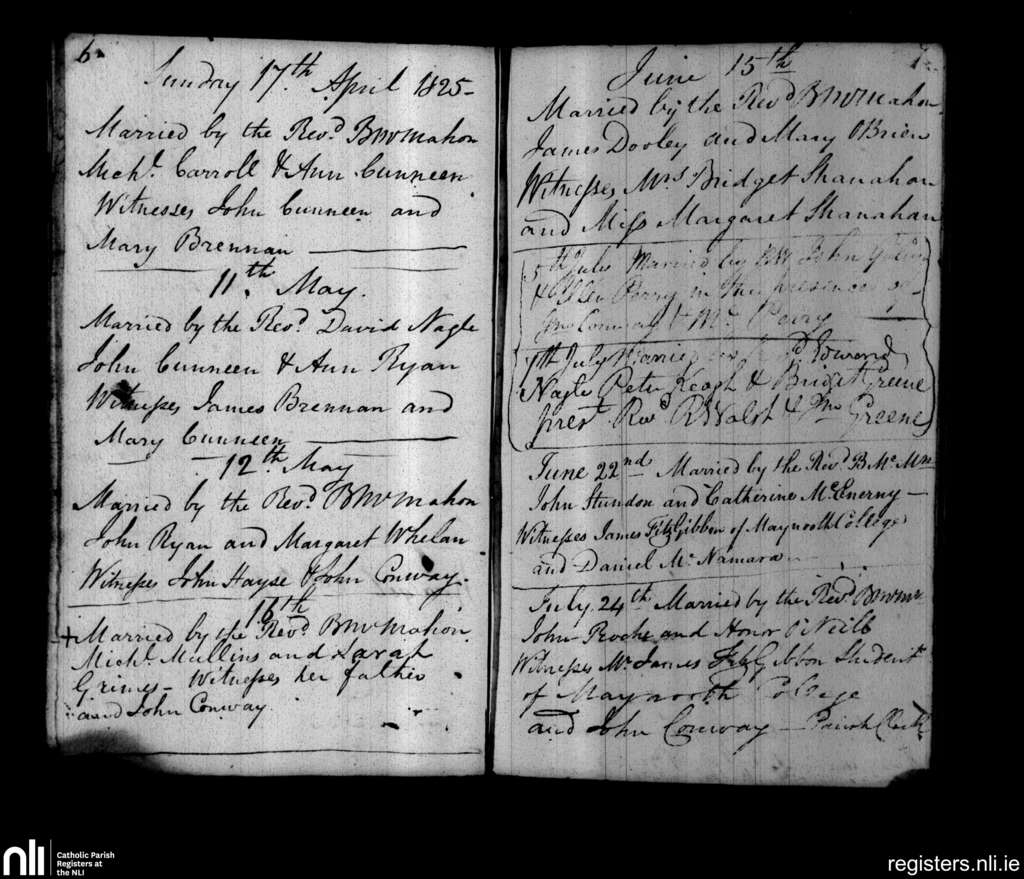 6.
Sunday 17th April 1825-
Married by the Revd. B McMahon
Michl. Carroll & Ann Cunneen
Witnesses John Cunneen and
Mary Brennan
11th May.
Married by the Revd. David Nagle
John Cunneen & Ann Ryan
Witnesses James Brennan and
Mary Cunneen
12th May
Married by the Revd. B McMahon
John Ryan and Margaret Whelan
Witnesses John Hayse & John Conway.
16th
+ Married by the Revd. B McMahon
Michl. Mullins and Sarah
Grimes - Witnesses her father
and John Conway.
7.
June 15th
Married by the Revd B McMahon
James Dooley and Mary OBrien
Witnesses, Mrs Bridget Shanahan
and Miss Margaret Shanahan
5th July Married by John
& Ellen Perry in the presence of
Jno & Perry
7th July Married by Edward
Nagle Peter Keogh & Bridget Greene
prest. Revd R Walsh & Jno Greene
June 22nd Married by the Revd. B Mc Mn
John Stundon and Catherine McEnerny -
Witnesses James FitzGibbon of Maynooth College
and Daniel Mc Namara
July 24th Married by the Revd B McMn
John Roche and Honor O'Neill
Witnesses Mr James FitzGibbon Student
of Maynooth College
and John Conway - Parish Clerk
nli
Catholic Parish
Registers at
the NLI
registers.nli.ie